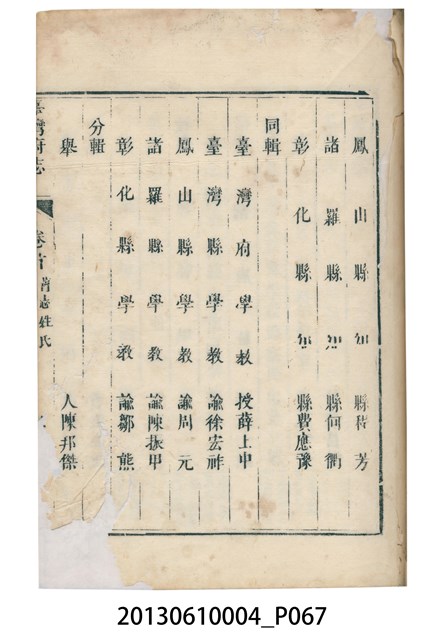 鳳山縣知縣秦芳
諸羅縣知縣何衢
彰化縣知縣費應豫
同輯
臺灣府學教授薛士中
臺灣縣學教諭徐宏祚
鳳山縣學教諭周元
諸羅縣學教諭陳振甲
彰化縣學教諭鄒熊
分輯
舉人陳邦傑
臺灣府志
卷首
脩志姓氏
20130610004_P067